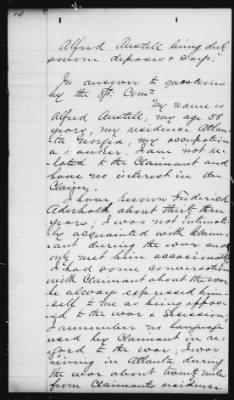 Alfred Austell being duly
sworn deposes & says:
In answer to questions
by the Sp: Comr
My name is
Alfred Austell, my age 58
years, my residence Atlan-
ta Georgia, my occupation
a banker, I am not re-
lated to the Claimant and
have no interest in the
Claim.
I have known Frederick
Aderhold about thirty three
years; I was not intimate-
ly acquainted with Claim-
ant during the war and
only met him occasionally
I had some conversation
with Claimant about the war
he always expressed him-
self to me as being oppos-
ed to the war & Secession;
I remember no language
used by Claimant in re-
gard to the war; I was
living in Atlanta during
the war about twenty miles
from Claimants residence